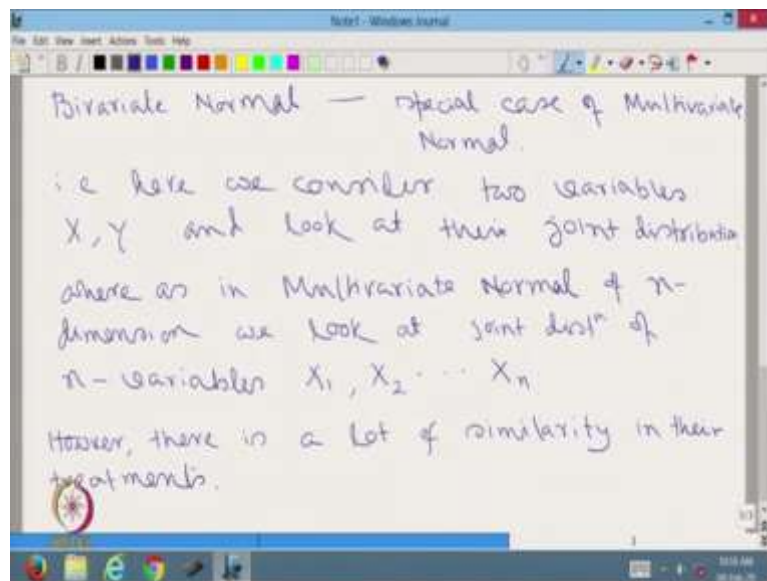 Note1 - Windows Journal
File Edit View Insert Actions Tools Help
Bivariate Normal — special case of Multivariate
Normal.
i.e here we consider two variables
X, Y and look at their joint distribution
where as in Multivariate Normal of n-
dimension we look at joint distⁿ of
n-variables X₁, X₂ ... Xₙ
However, there is a lot of similarity in their
treatments.